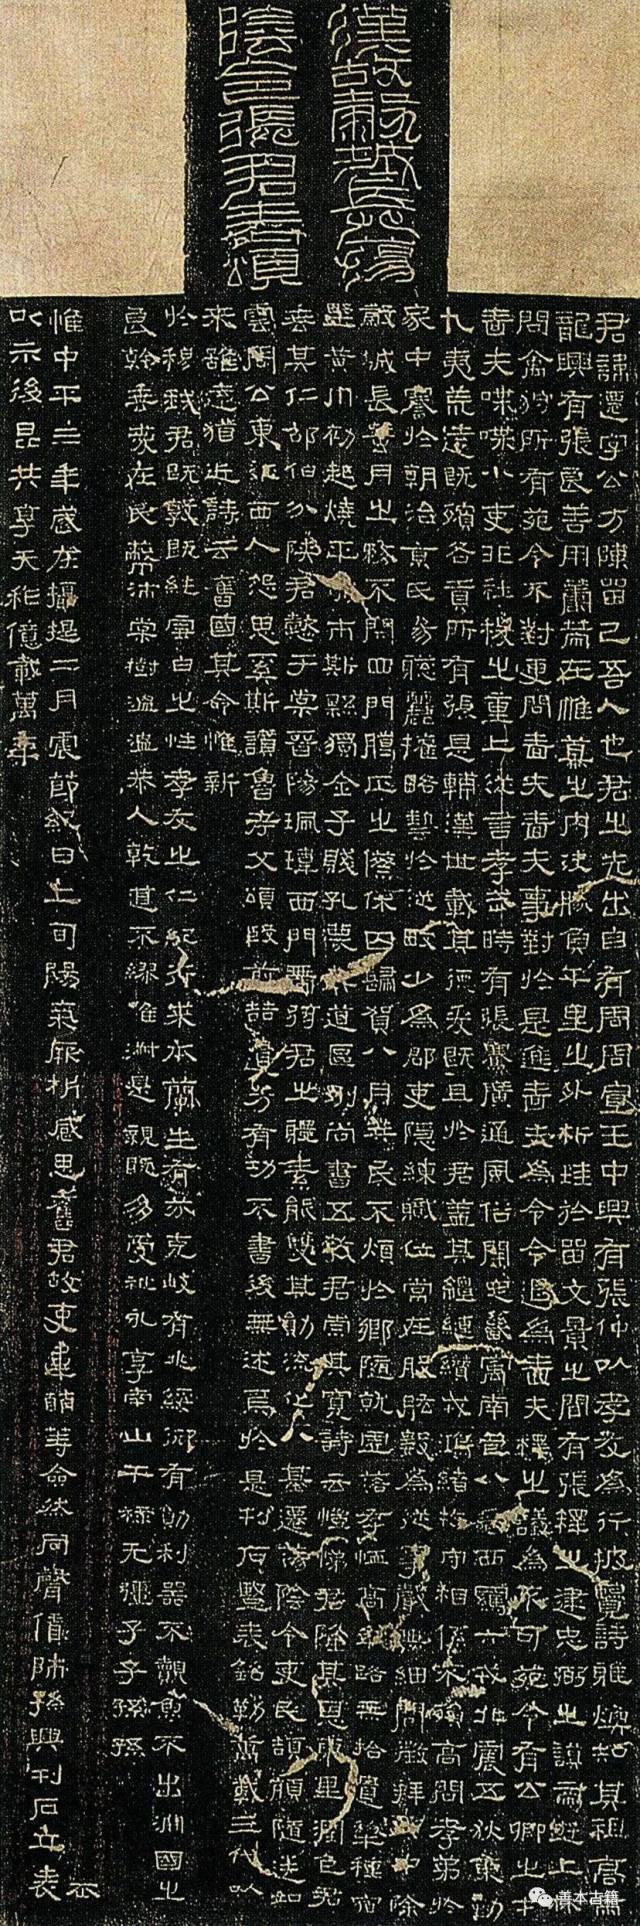 漢故穀城長蕩
陰令張君表頌
君諱遷字公方陳留己吾人也君之先出自有周周宣王中興有張仲以孝友為行披覽詩雅煥知其祖高帝
龍興有張良善用籌策在帷幕之內決勝負千里之外析珪於留文景之間有張釋之建忠弼之謨帝遊上林
問禽狩所有苑令不對更問嗇夫嗇夫事對於是進嗇夫為令令退為嗇夫釋之議為不可苑令有公卿之才
嗇夫喋喋小吏非社稷之重上從言孝武時有張騫廣通風俗開定畿寓南苞八蠻西羈六戎北震五狄東勤
九夷荒遠既殯各貢所有張是輔漢世載其德爰既且於君蓋其繵縺纘戎鴻緒牧守相係不殞高問孝弟於
家中謇於朝治京氏易聰麗權略藝於從畋少為郡吏隱練職位常在股肱數為從事聲無細聞徵拜郎中除
穀城長蠶月之務不閉四門臘正之僚休囚歸賀八月筭民不煩於鄉隨就虛落存恤高年路無拾遺犁種宿
野黃巾初起燒平城市斯縣獨全子賤孔蔑其道區別尚書五教君崇其寬詩云愷悌君隆其恩東里潤色君
垂其仁邵伯分陝君懿于棠晉陽珮瑋西門帶弦君之體素能雙其勛流化八基遷蕩陰令吏民頡頏隨送如
雲周公東征西人怨思奚斯讚魯考父頌殷前喆遺芳有功不書後無述焉於是刊石豎表銘勒萬載三代以
來雖遠猶近詩云舊國其命惟新
於穆我君既敦既純雪白之性孝友之仁紀行來本蘭生有芬克岐有兆綏御有勛利器不覿魚不出淵國之
良幹垂愛在民蔽沛棠樹溫溫恭人乾道不繆唯淑是親既多受祉永享南山干祿无疆子子孫孫
惟中平三年歲在攝提二月震節紀日上旬陽氣厥析感思舊君故吏韋萌等僉然同聲賃師孫興刊石立表
以示後昆共享天祚億載萬年
善本古籍